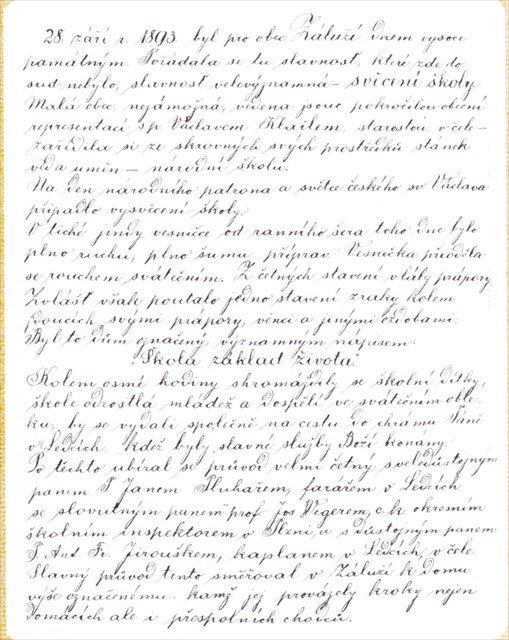 28. září r. 1893. byl pro obec Záluží dnem vysoce
památným. Pořádala se tu slavnost, které zde do
sud nebylo, slavnost velevýznamná – svěcení školy.
Malá obec, nezámožná, vedena jsouc pokročilou obecní
representací s p. Václavem Klailem, starostou v čele –
zařídila si ze skrovných svých prostředků stánek
věda umín – národní školu.
Na den národního patrona a světce českého sv. Václava
připadlo vysvěcení školy.
V tiché jindy vesničce od ranního šera toho dne bylo
plno ruchu, plno šumu, příprav. Vesnička přioděla
se rouchem svátečním. Z četných stavení vlály prápory.
Zvlášť však poutalo jedno stavení zraky kolem
jdoucích svými prápory, věnci a jinými ozdobami.
Byl to dům označený významným nápisem
"Škola základ života."
Kolem osmé hodiny shromáždily se školní dítky,
škole odrostlá mládež a dospělí ve svátečním oble-
ku, by se vydali společně na cestu do chrámu Páně
v Ledcích, kdež byly slavné služby Boží konány.
Po těchto ubíral se průvod velmi četný s veledůstojným
panem P. Janem Pluhařem, farářem v Ledcích
se slovutným panem prof. Jos. Wegerem, c. k. okresním
školním inspektorem v Plzni, a s důstojným panem
P. Ant. Fr. Jirouškem, kaplanem v Ledcích, v čele.
Slavný průvod tento směřoval v Záluží k domu
výše označenému, kamž jej provázely kroky nejen
domácích ale i přespolních chodců.